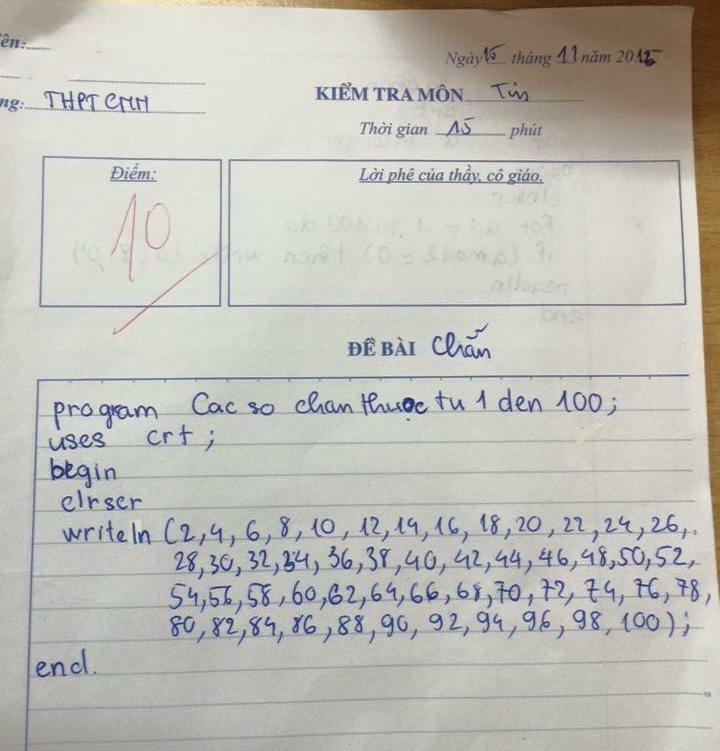 ên:
Ngày 15 tháng 11 năm 2016
ng: THPT CMM
KIỂM TRA MÔN Tin
Thời gian 15 phút
Điểm:
Lời phê của thầy, cô giáo.
10
ĐỀ BÀI Chẵn
program Cac so chan thuoc tu 1 den 100;
uses crt;
begin
clrscr
writeln (2,4,6,8,10,12,14,16,18,20,22,24,26,
28,30,32,34,36,38,40,42,44,46,48,50,52,
54,56,58,60,62,64,66,68,70,72,74,76,78,
80,82,84,86,88,90,92,94,96,98,100);
end.